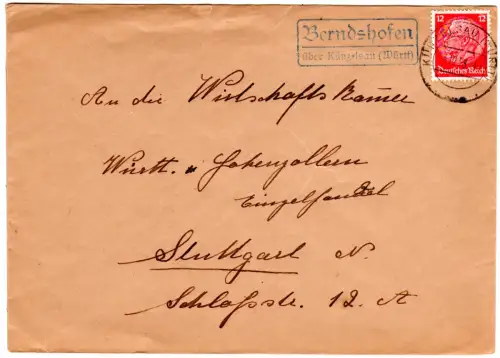 Berndshofen
über Künzelsau (Württ)
12 12
Deutsches Reich
An die Wirtschaftskammer
Württ. u Hohenzollern
Einzelhandel
Stuttgart N.
Schloßstr. 12 A